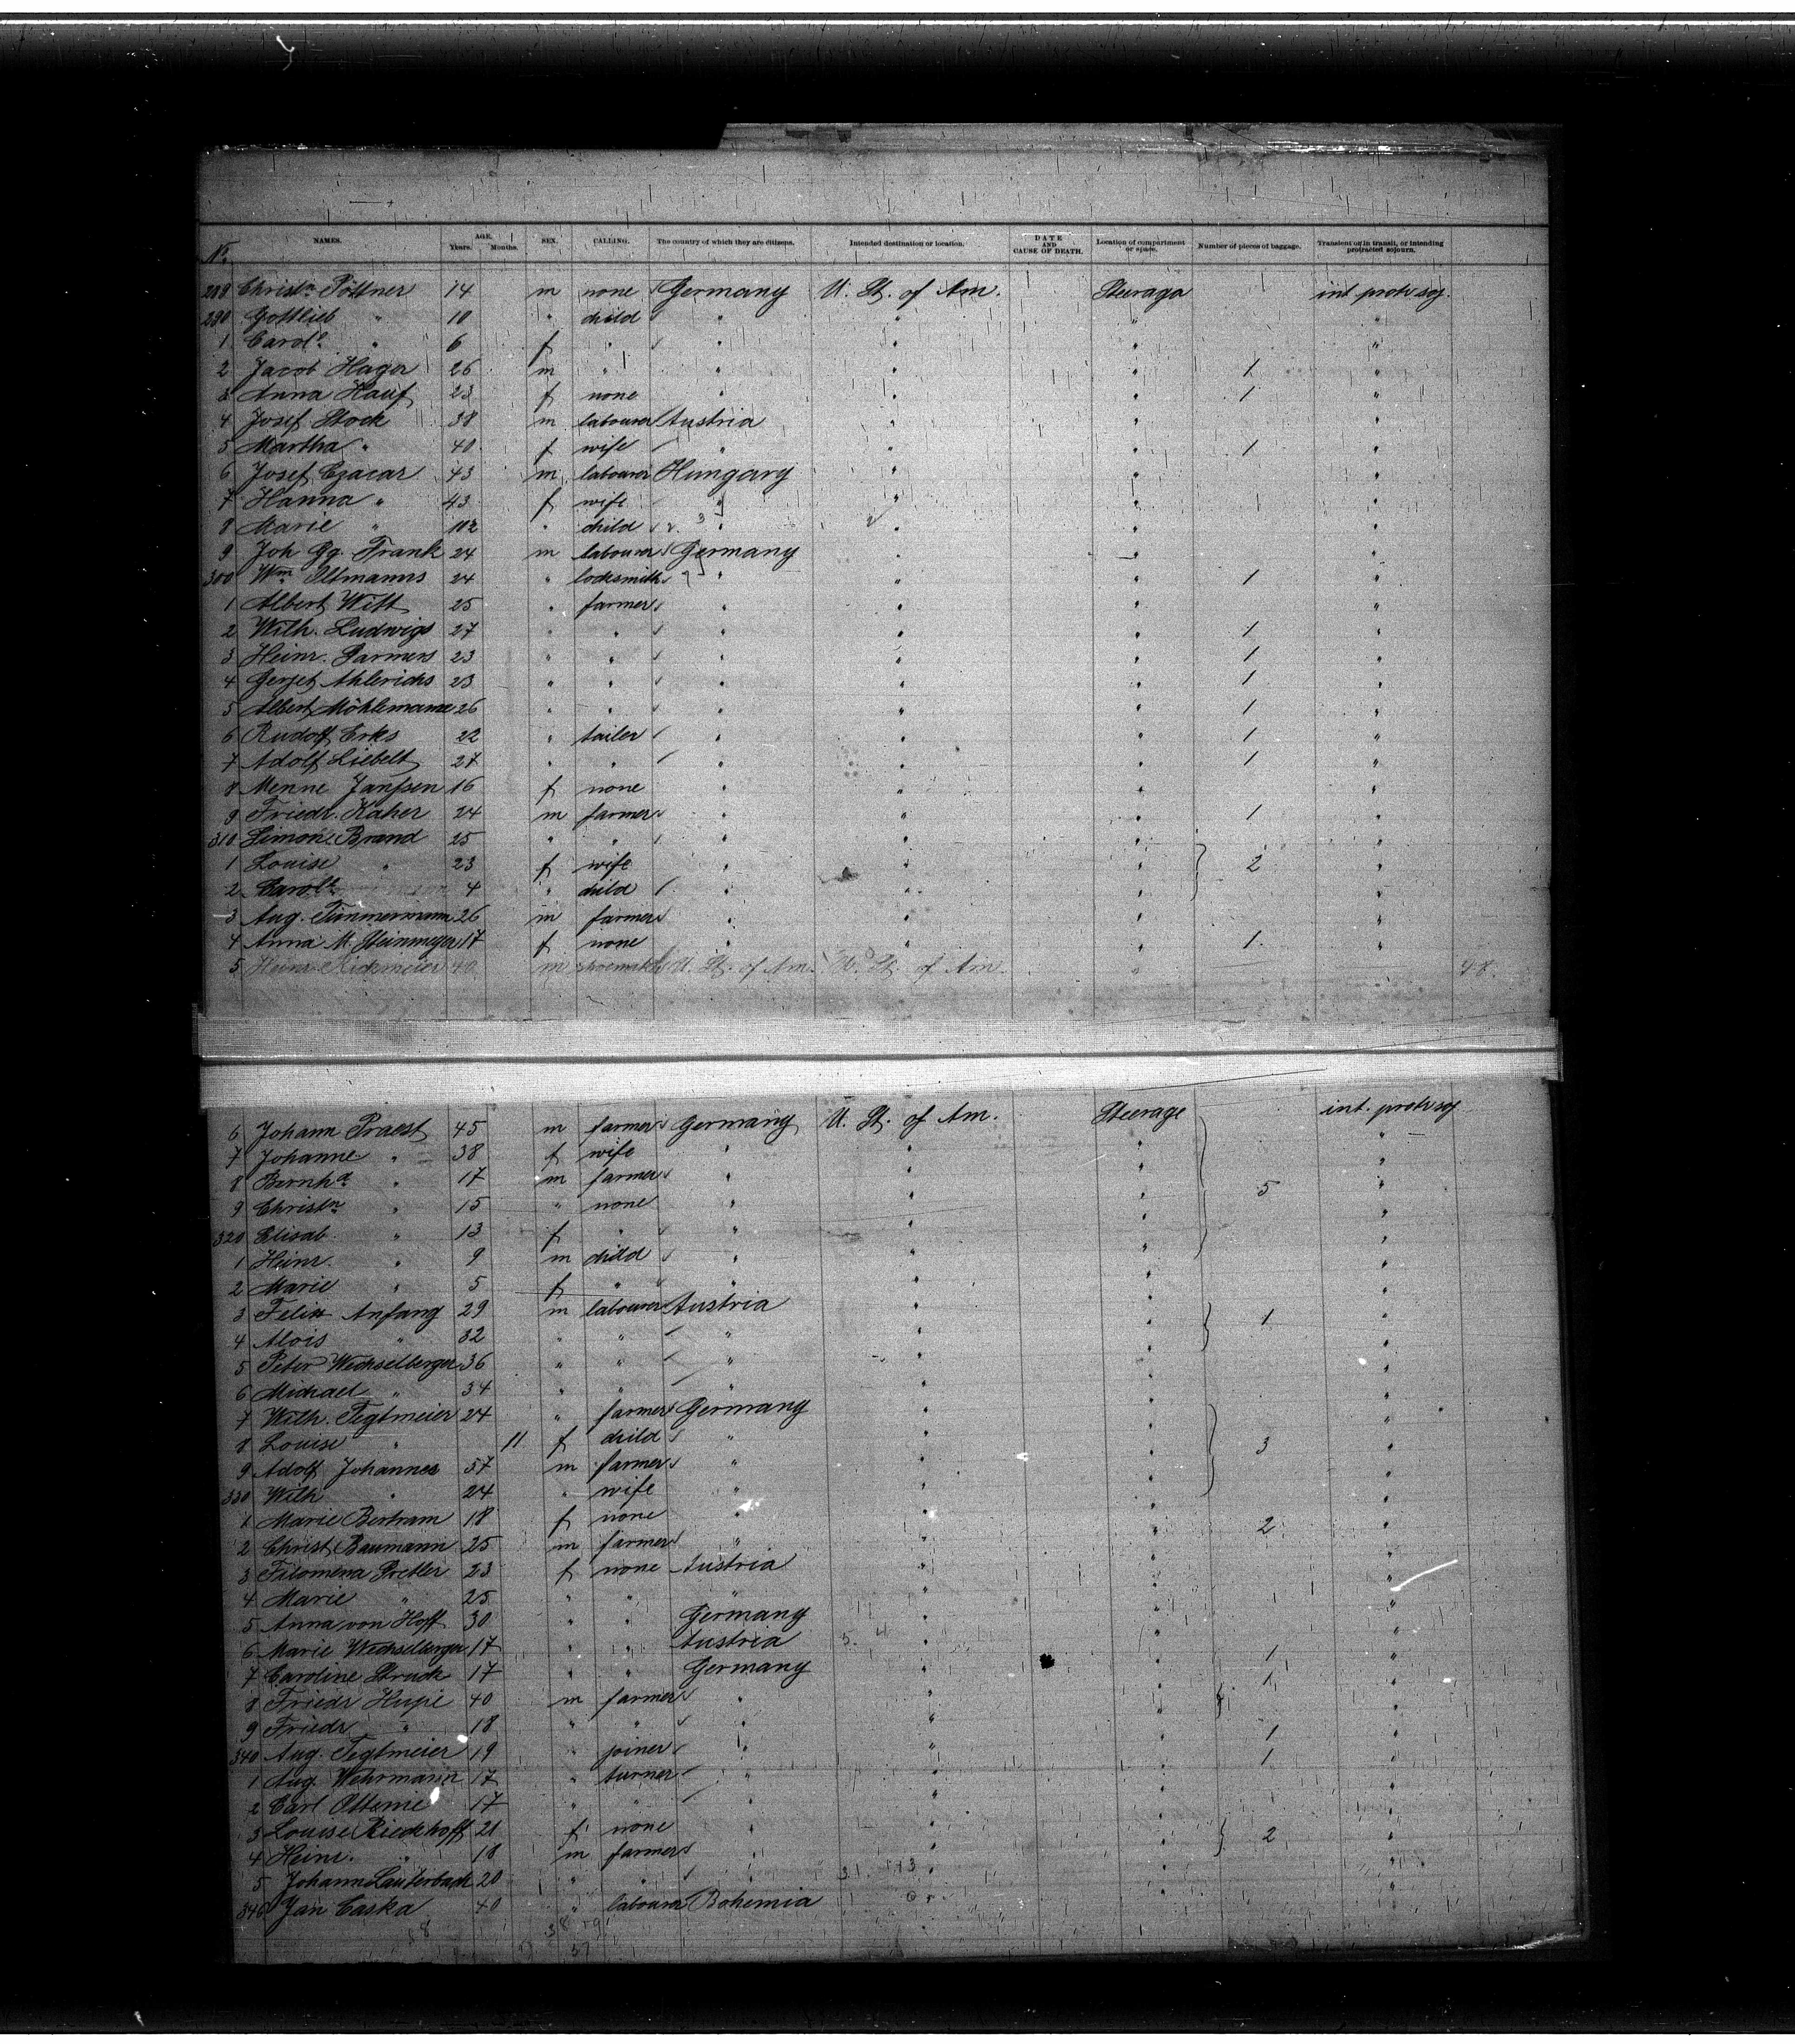 No. NAMES. AGE. Years. Months. SEX. CALLING. The country of which they are citizens. Intended destination or location. DATE AND CAUSE OF DEATH. Location of compartment or space. Number of pieces of baggage. Transient or in transit, or intending protracted sojourn.
289 Christn Pöttner 14 m none Germany U. St. of Am. Steerage int protr soj.
290 Gottlieb " 10 " child " " " "
1 Carole " 6 f " " " " "
2 Jacob Hager 26 m " " " " 1 "
3 Anna Hauf 23 f none " " " 1 "
4 Josef Stock 38 m labourer Austria " " "
5 Martha " 40 f wife " " " 1 "
6 Josef Czacar 43 m labourer Hungary " " "
7 Hanna " 43 f wife " " " "
8 Marie " " child " " " "
9 Joh Gg. Frank 24 m labourer Germany " " "
300 Wm Iltmanns 24 " locksmith " " " 1 "
1 Albert Witt 25 " farmer " " " "
2 Wilh. Ludwigs 27 " " " " " 1 "
3 Heinr. Garmers 23 " " " " " 1 "
4 Gerjet Ahlerichs 23 " " " " " 1 "
5 Albert Möhlemann 26 " " " " " 1 "
6 Rudolf Erks 22 " tailer " " " 1 "
7 Adolf Liebelt 27 " " " " " 1 "
8 Menne Janssen 16 f none " " " "
9 Friedr. Kaher 24 m farmer " " " 1 "
310 Simon Brand 25 " " " " " "
1 Louise " 23 f wife " " " 2 "
2 Carole 4 " child " " " "
3 Aug. Timmermann 26 m farmer " " " "
4 Anna M. Steinmeyer 17 f none " " " 1 "
5 Heinr. Rickmeier 40 m shoemaker U. St. of Am. U. St. of Am. " 48.
6 Johann Praest 45 m farmer Germany U. St. of Am. Steerage int. protr soj
7 Johanne " 38 f wife " " " "
8 Bernhd " 17 m farmer " " " "
9 Christn " 15 " none " " " 5 "
320 Elisab. " 13 f " " " " "
1 Heinr. " 9 m child " " " "
2 Marie " 5 f " " " " "
3 Felix Anfang 29 m labourer Austria " " 1 "
4 Alois " 32 " " " " " "
5 Peter Wechselberger 36 " " " " " "
6 Michael " 34 " " " " " "
7 Wilh. Tegtmeier 24 " farmer Germany " " "
8 Louise " 11 f child " " " 3 "
9 Adolf Johannes 57 m farmer " " " "
330 Wilh " 24 " wife " " " "
1 Marie Bertram 18 f none " " " 2 "
2 Christ Baumann 25 m farmer " " " "
3 Filomena Pretler 23 f none Austria " " "
4 Marie " 25 " " " " " "
5 Anna von Hoff 30 " " Germany " " "
6 Marie Wechselberger 17 " " Austria " " 1 "
7 Caroline Struck 17 " " Germany " " 1 "
8 Friedr Hupe 40 m farmer " " " "
9 Friedr " 18 " " " " " 1 "
340 Aug. Tegtmeier 19 " joiner " " " 1 "
1 Aug. Wehrmann 17 " turner " " " "
2 Carl Ottenie 17 " " " " " "
3 Louise Riedehoff 21 f none " " " 2 "
4 Heinr. " 18 m farmer " " " "
5 Johann Lauterbach 20 " " " " " "
346 Jan Caska 40 " labourer Bohemia